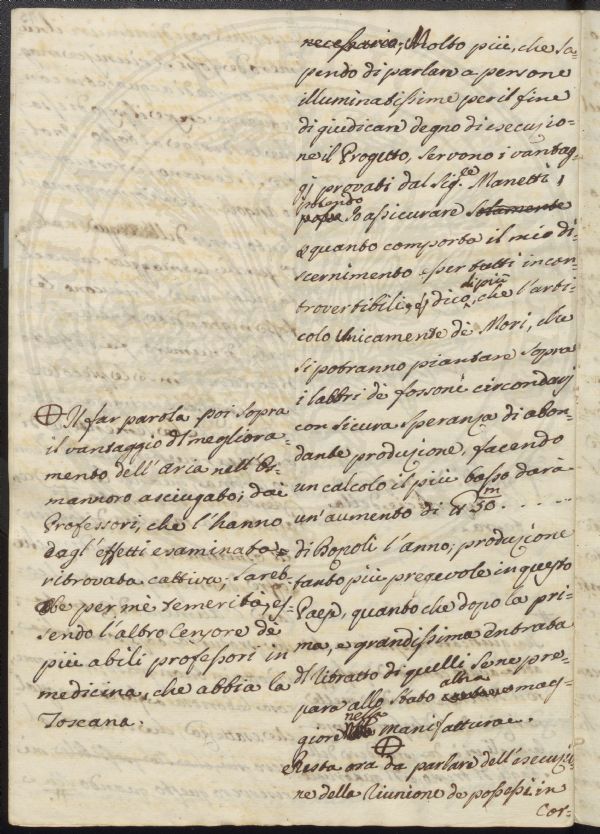 necessario; Molto più, che sa=
pendo di parlare a persone
illuminatissime per il fine
di giudicare degno di esecuzio=
ne il Progetto, servono i vantag=
gi provati dal Sig.re Manetti,
potendo
so assicurare solamente
quanto comporta il mio di=
scernimento per tutti incon=
di più
trovertibili, e dico, che l'arti=
colo Unicamente de Mori, che
si potranno piantare sopra
i labbri de fossoni circondarj
con sicura speranza di abon=
dante produzione, facendo
un calcolo il più basso darà
un'aumento di 50.m
di Popoli l'anno; produzione
tanto più pregevole in questo
Paese, quanto che dopo la pri=
ma, e grandissima Entrata
Dl ritratto di quelli se ne pre=
para allo Stato altra mag=
giore nelle Manifatture.
⊕
Resta ora da parlare dell'esecuzio=
ne della Riunione de possessi in
Cor=
⊕ Il far parola poi sopra
il vantaggio Dl megliora=
mento dell'Aria nell'Or=
mannoro asciugato; dai
Professori, che l'hanno
dagl'effetti esaminata, e
ritrovata cattiva, sareb=
be per mè temerità, es=
sendo l'altro Censore de
più abili professori in
medicina, che abbia la
Toscana.